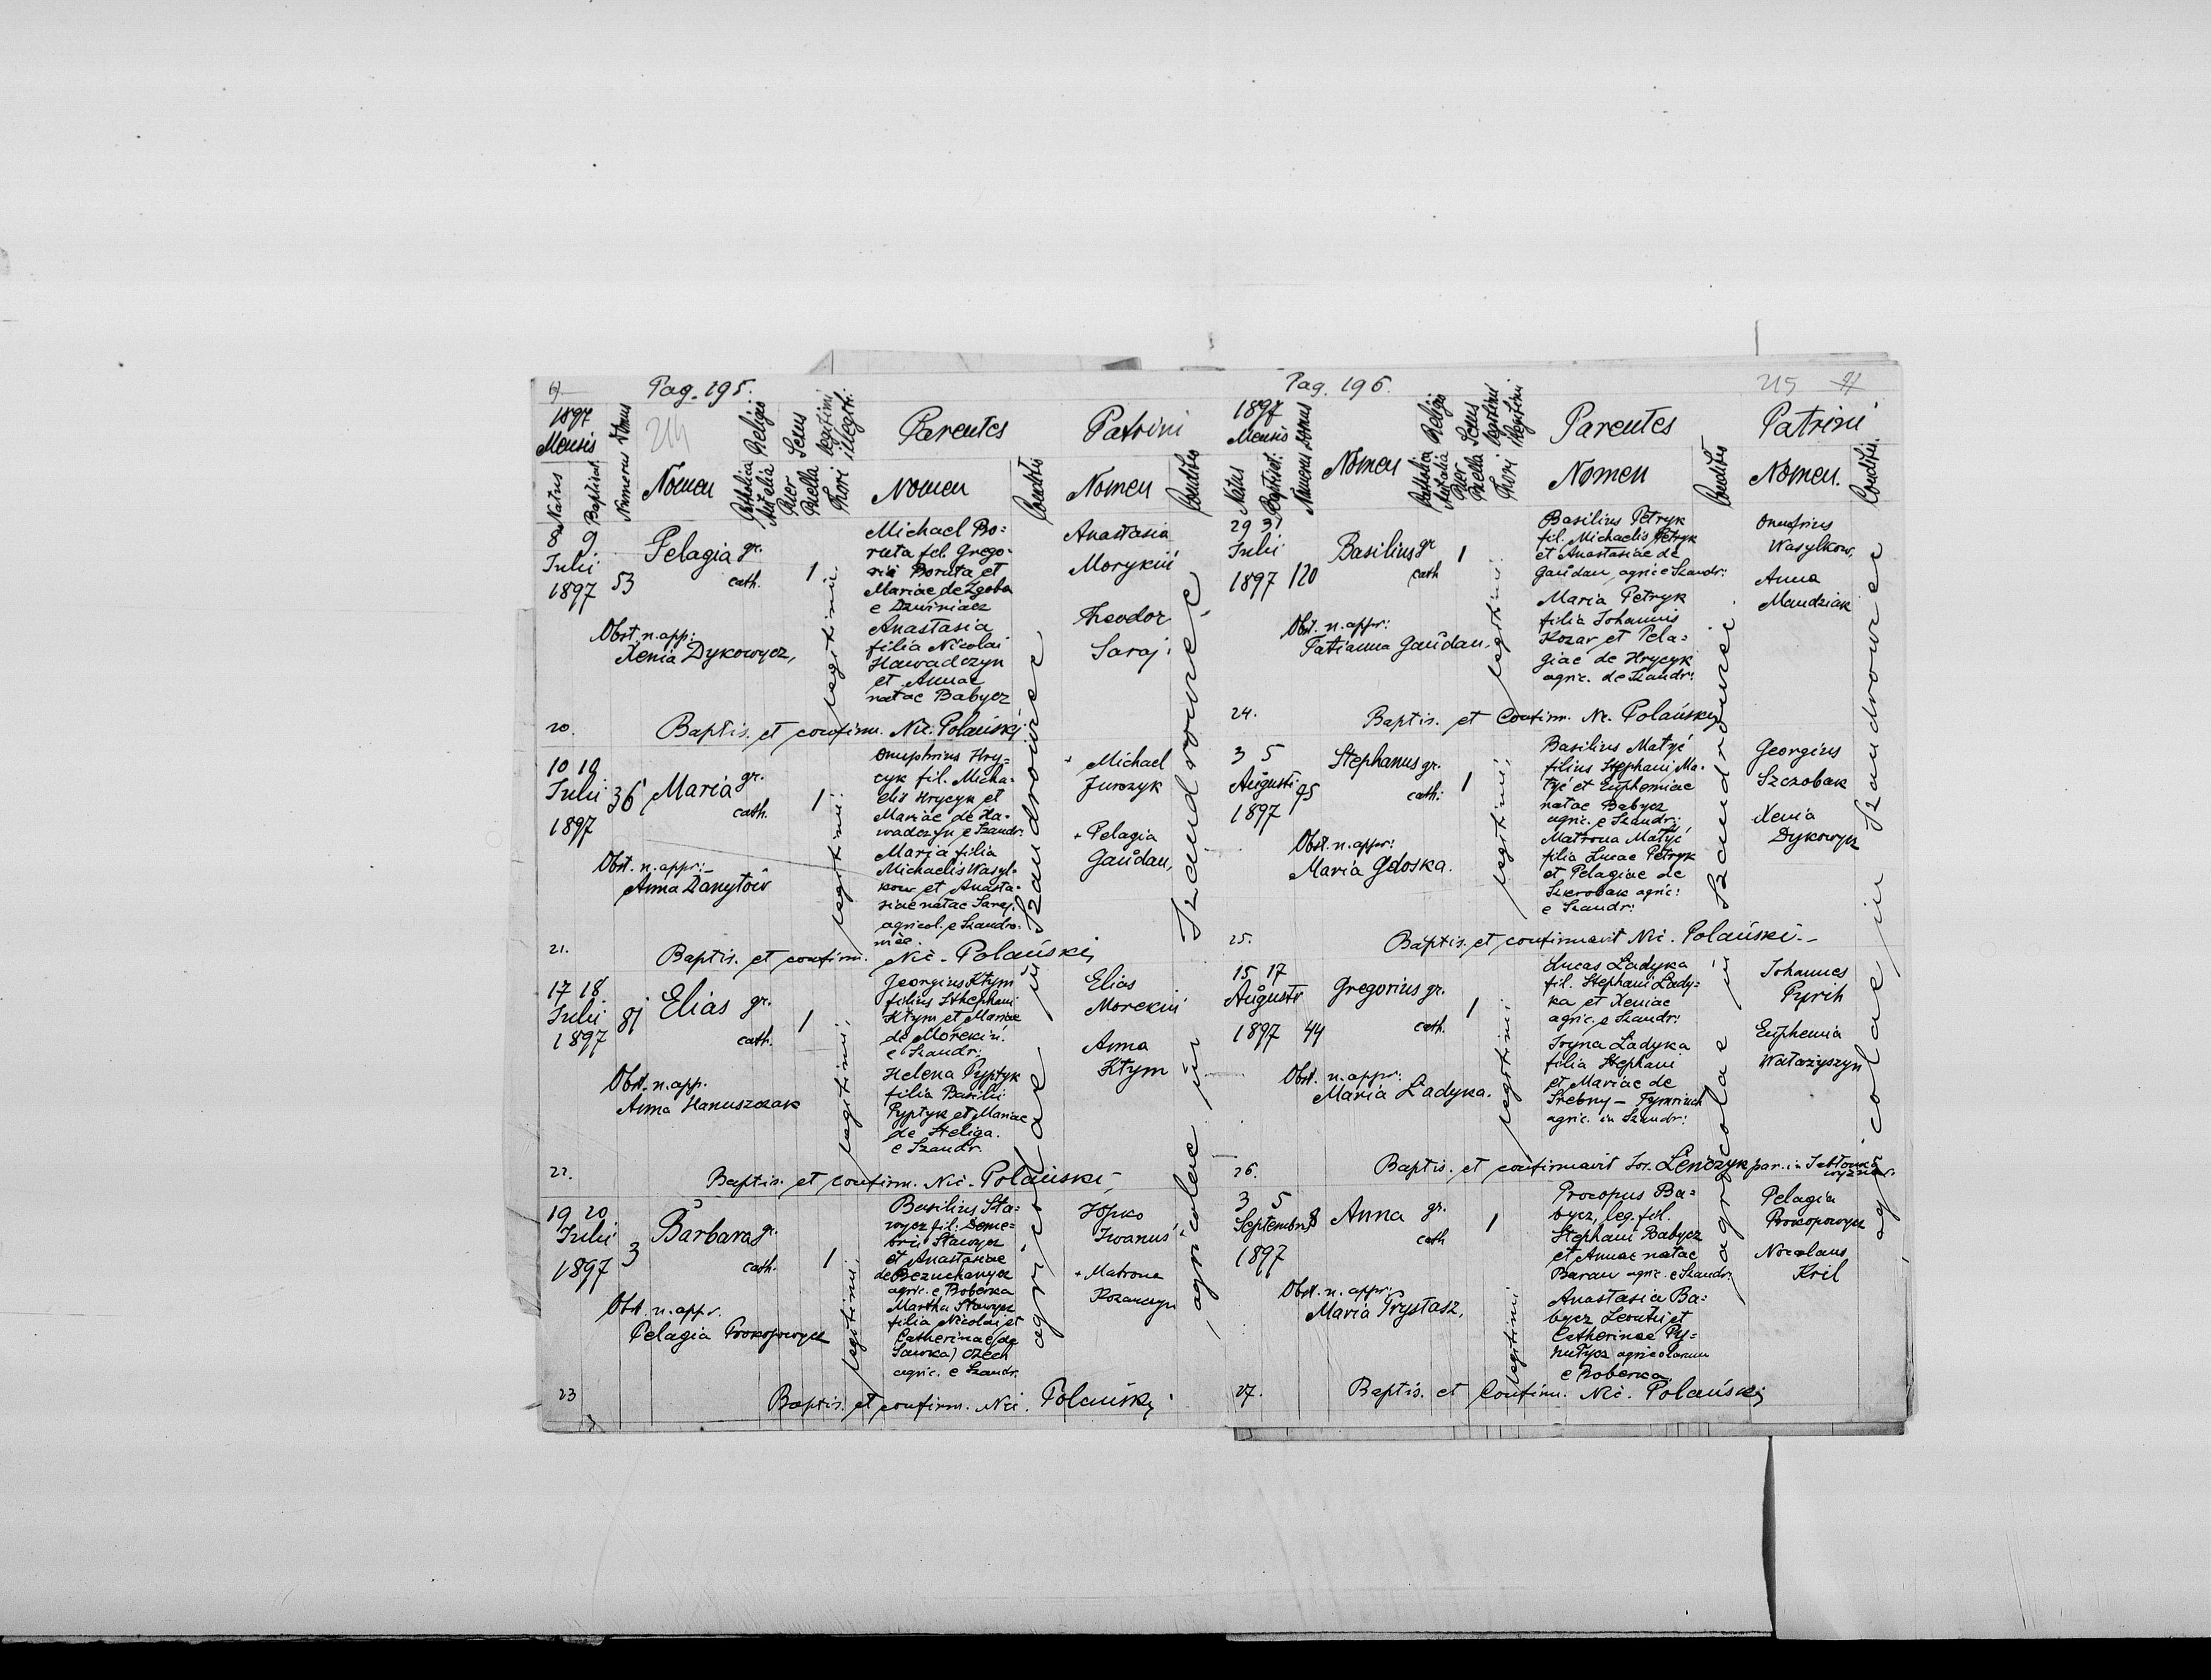 Pag. 195.
1897
Mensis
Natus
Baptisat.
Numerus Domus
214
Nomen
Religio
Catholica
Aut alia
Sexus
Puer
Puella
legitimi
illegit.
Thori
Parentes
Nomen
Conditio
Patrini
Nomen
Conditio
8 9
Julii
1897
53
Pelagia gr.
cath.
1
legitimi
Michael Bo=
ruta fil. Grego-
rii Boruta et
Mariae de Zgoba
e Dzwiniacz
Anastasia
filia Nicolai
Hawadczyn
et Annae
natae Babycz
Anastasia
Morykiń
Theodor
Saraj
Obst. n. app:
Xenia Dykowycz,
20.
Baptis. et confirm. Nic. Polański
10 10
Julii
1897
36
Maria gr.
cath.
1
legitimi
Onuphrius Hry=
cyk fil. Micha-
elis Hrycyk et
Mariae de Ha-
wadczyn e Szandr:
Maria filia
Michaelis Wasyl-
kow et Anasta-
siae natae Saraj.
agricol. e Szandro-
wiec.
+ Michael
Jurczyk
+ Pelagia
Gaŭdan,
Obst. n. appr:-
Anna Danytów
21.
Baptis. et confirm. Nic. Polański
17 18
Julii
1897
81
Elias gr.
cath.
1
legitimi,
Georgius Kłym
filius Sthephani
Kłym et Mariae
de Morekiń.
e Szandr:
Helena Pyptyk
filia Basilii
Pyptyk et Mariae
de Steliga.
e Szandr.
Elias
Morekiń
Anna
Kłym
Obst. n. app.
Anna Hanuszczak
22.
Baptis. et confirm. Nic. Polański
19 20
Julii
1897
3
Barbara gr.
cath.
1
legitimi,
Basilius Sta=
wycz fil. Deme=
trii Stawycz
et Anastasiae
de Bezuchanycz
agric. e Boberka
Martha Stawycz
filia Nicolai et
Catherinae (de
Sawka) Czech
agric. e Szandr.
Józko
Iwanuś
+ Matrona
Kozanczyn
Obst. n. appr.
Pelagia Prokopowycz
23
Baptis. et confirm. Nic. Polański
agricolae in Szandrowiec
agricolae in Szandrowiec
Pag. 196.
215
1897
Mensis
Natus
Baptisat.
Numerus Domus
Nomen
Religio
Catholica
Aut alia
Sexus
Puer
Puella
legitimi
illegitimi
Thori
Parentes
Nomen
Conditio
Patrini
Nomen.
Conditio.
29 31
Julii
1897
120
Basilius gr
cath
1
legitimi
Basilius Petryk
fil. Michaelis Petryk
et Anastasiae de
Gaŭdan, agric e Szandr:
Maria Petryk
filia Johannis
Kozar et Pela=
giae de Hrycyk
agric. de Szandr:
Onufrius
Wasylkow,
Anna
Mandziak
Obst. n. appr:
Tatianna Gaŭdan,
24.
Baptis. et Confirm. Nic. Polański
3 5
Augusti
1897
95
Stephanus gr.
cath:
1
legitimi,
Basilius Matyć
filius Stephani Ma-
tyć et Euphemiae
natae Babycz
agric. e Szandr:
Matrona Matyć
filia Lucae Petryk
et Pelagiae de
Szczobak agric:
e Szandr:
Georgius
Szczobak
Xenia
Dykowycz
Obst. n. appr:
Maria Gdoska.
25.
Baptis. et confirmavit Nic. Polański.-
15 17
Augusti
1897
44
Gregorius gr.
cath.
1
legitimi
Lucas Ladyka
fil. Stephani Lady=
ka et Xeniae
agric. e Szandr:
Iryna Ladyka
filia Stephani
et Mariae de
Srebny -
agric. in Szandr:
Johannes
Pyrih
Euphemia
Watażyszyn
Obst. n. appr:
Maria Ladyka.
26.
Baptis. et confirmavit Jos. Lenczyk par. in Jabłonka
wyżna.
3 5
Septembris
1897
8
Anna gr.
cath
1
legitimi
Procopus Ba=
bycz, leg. fil.
Stephani Babycz
et Annae natae
Baran agric. e Szandr:
Anastasia Ba=
bycz Leontii et
Catherinae Py=
nutycz agricolarum
e Boberka.
Pelagia
Prokopowycz
Nicolaus
Kril
Obst. n. appr:
Maria Prystasz,
27.
Baptis. et Confirm. Nic. Polański
agricolae in Szandrowiec
agricolae in Szandrowiec